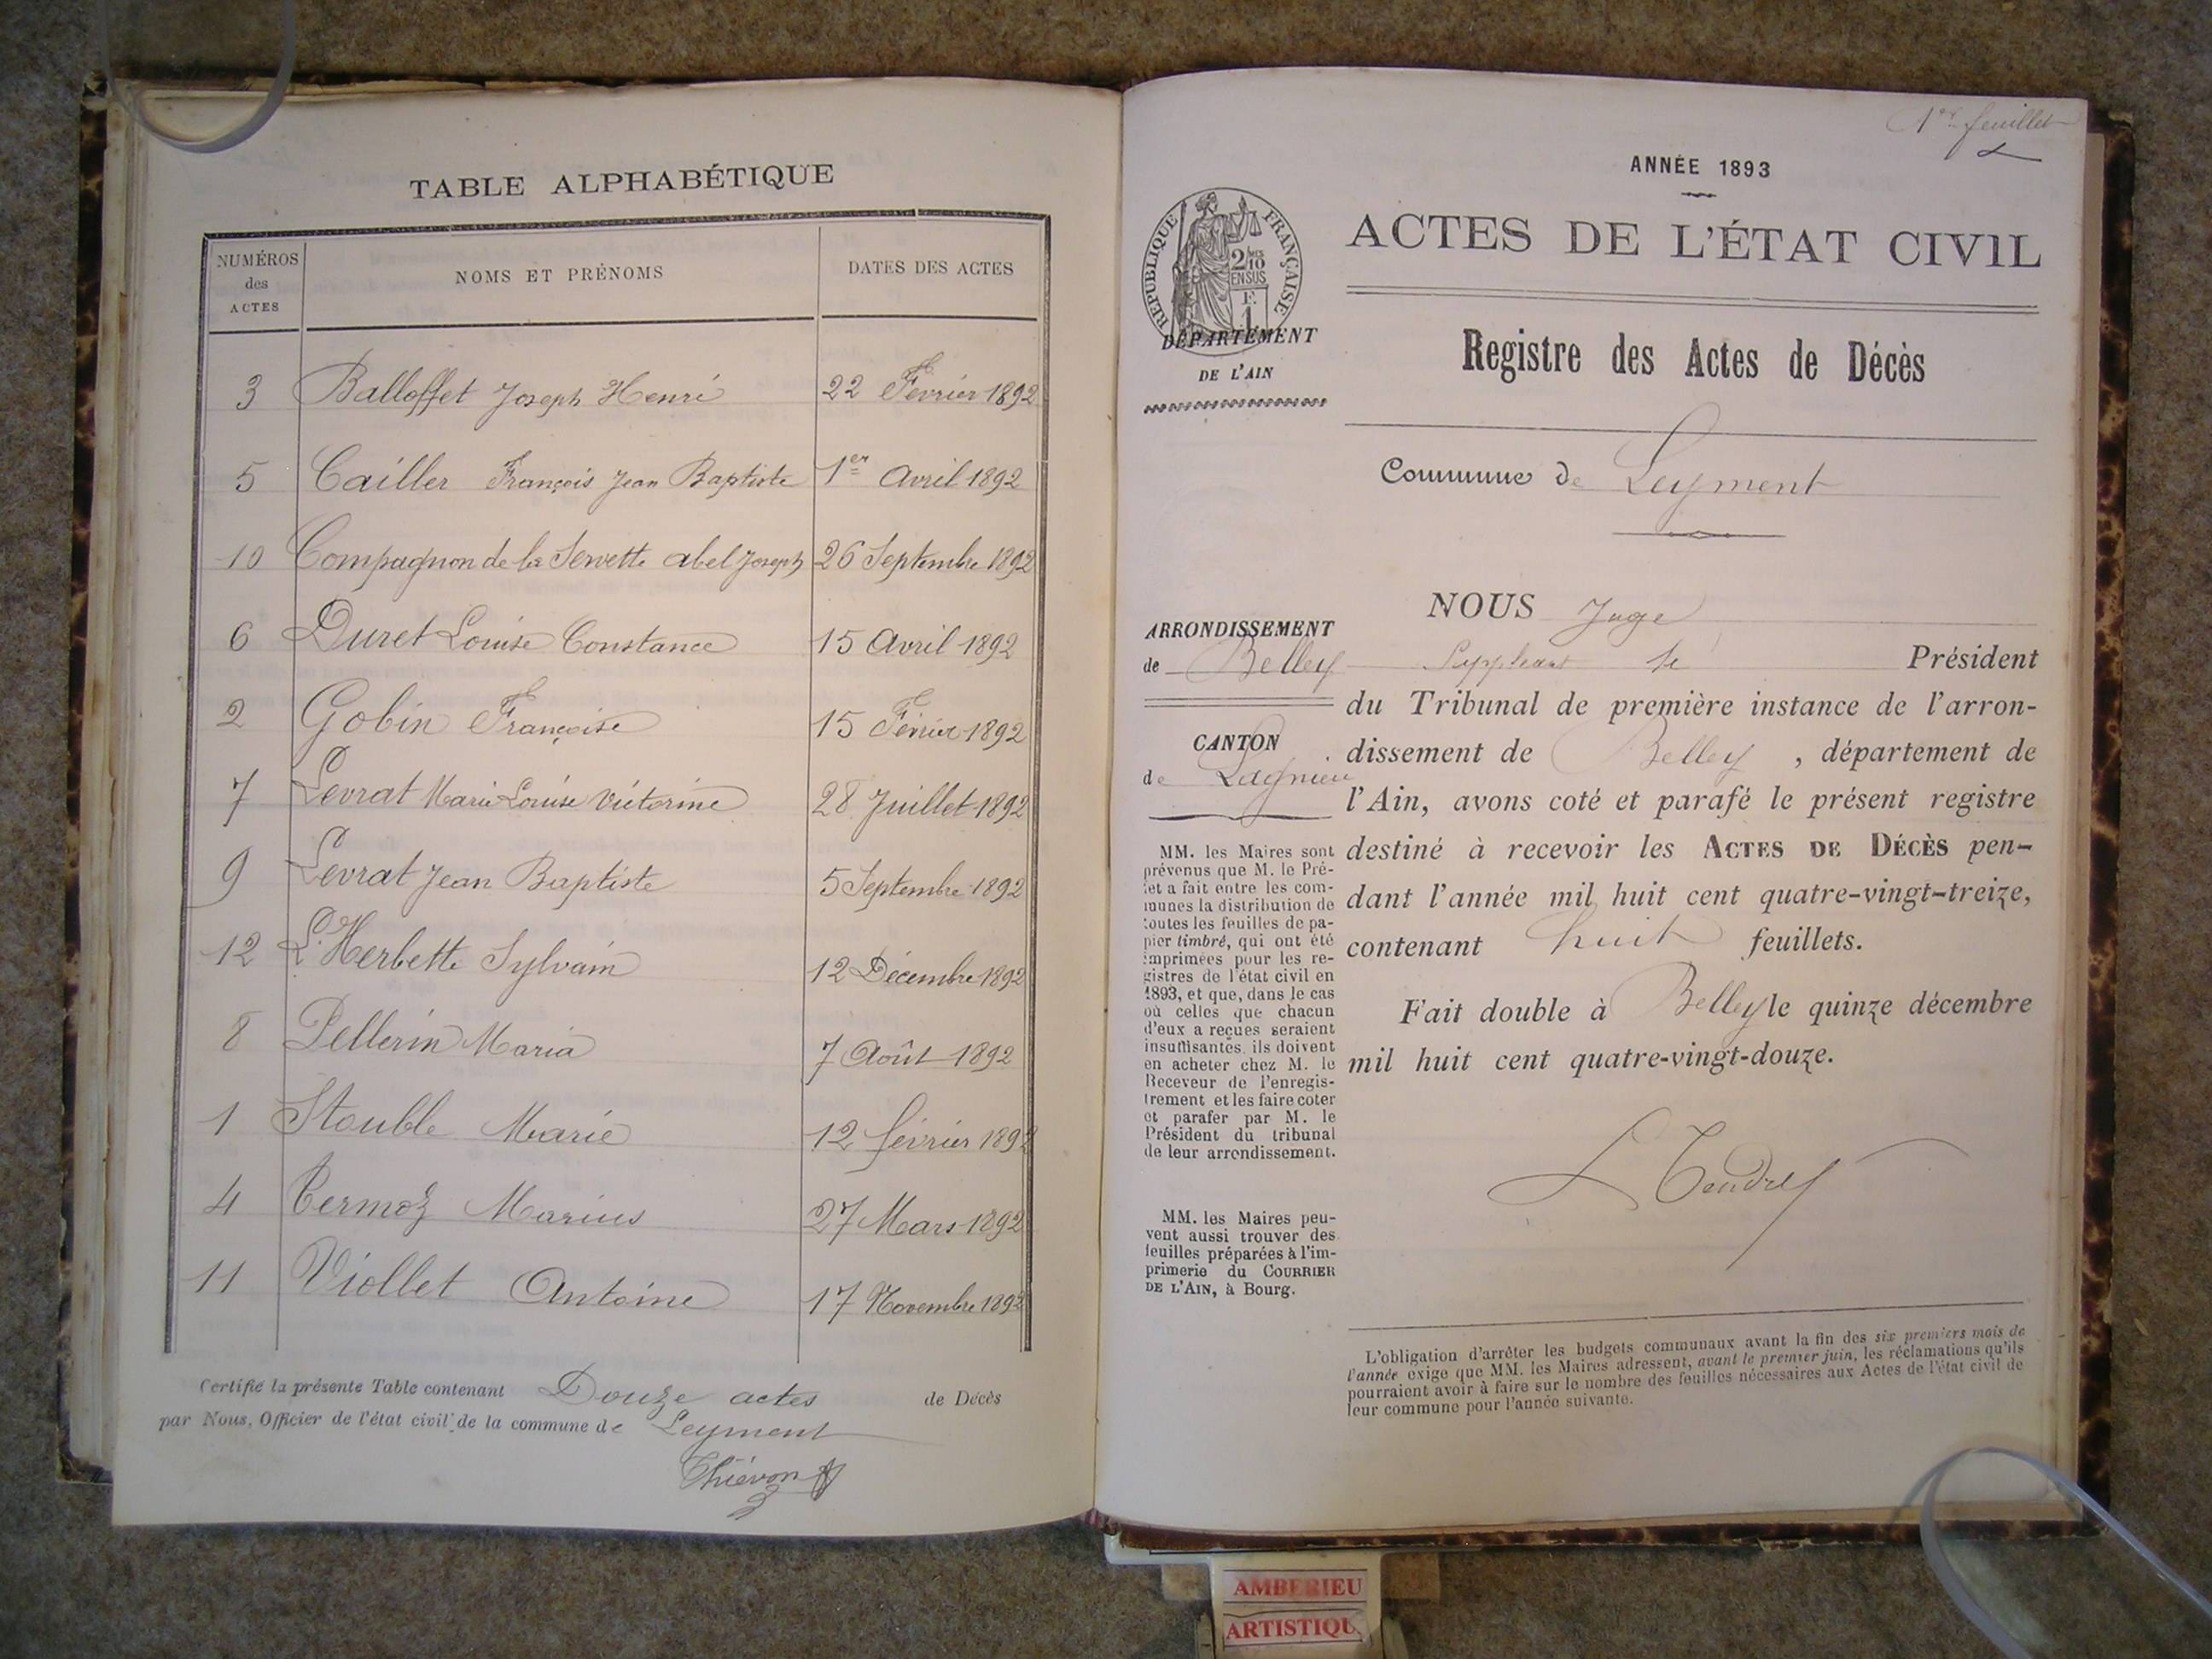 TABLE ALPHABÉTIQUE
NUMÉROS des ACTES
NOMS ET PRÉNOMS
DATES DES ACTES
3 Balloffet Joseph Henri 22 Février 1892
5 Cailler François Jean Baptiste 1er Avril 1892
10 Compagnon de la Servette Abel Joseph 26 Septembre 1892
6 Duret Louise Constance 15 Avril 1892
2 Gobin Françoise 15 Février 1892
7 Levrat Marie Louise Victorine 28 Juillet 1892
9 Levrat Jean Baptiste 5 Septembre 1892
12 L'Herbette Sylvain 12 Décembre 1892
8 Pellerin Maria 7 Août 1892
1 Stouble Marie 12 février 1892
4 Termoz Marius 27 Mars 1892
11 Viollet Antoine 17 Novembre 1892
Certifié la présente Table contenant Douze actes de Décès
par Nous, Officier de l'état civil de la commune de Leyment
Thiévon
1er feuillet
ANNÉE 1893
ACTES DE L'ÉTAT CIVIL
RÉPUBLIQUE FRANÇAISE
2/10 EN SUS
F. 1
DÉPARTEMENT
DE L'AIN
Registre des Actes de Décès
Commune de Leyment
ARRONDISSEMENT
de Belley
CANTON
de Lagnieu
MM. les Maires sont
prévenus que M. le Pré-
fet a fait entre les com-
munes la distribution de
toutes les feuilles de pa-
pier timbré, qui ont été
imprimées pour les re-
gistres de l'état civil en
1893, et que, dans le cas
où celles que chacun
d'eux a reçues seraient
insuffisantes, ils doivent
en acheter chez M. le
Receveur de l'enregis-
trement et les faire coter
et parafer par M. le
Président du tribunal
de leur arrondissement.
MM. les Maires peu-
vent aussi trouver des
feuilles préparées à l'im-
primerie du COURRIER
DE L'AIN, à Bourg.
NOUS Juge
Suppléant le Président
du Tribunal de première instance de l'arron-
dissement de Belley, département de
l'Ain, avons coté et parafé le présent registre
destiné à recevoir les ACTES DE DÉCÈS pen-
dant l'année mil huit cent quatre-vingt-treize,
contenant huit feuillets.
Fait double à Belley le quinze décembre
mil huit cent quatre-vingt-douze.
L'obligation d'arrêter les budgets communaux avant la fin des six premiers mois de
l'année exige que MM. les Maires adressent, avant le premier juin, les réclamations qu'ils
pourraient avoir à faire sur le nombre des feuilles nécessaires aux Actes de l'état civil de
leur commune pour l'année suivante.
AMBERIEU
ARTISTIQU